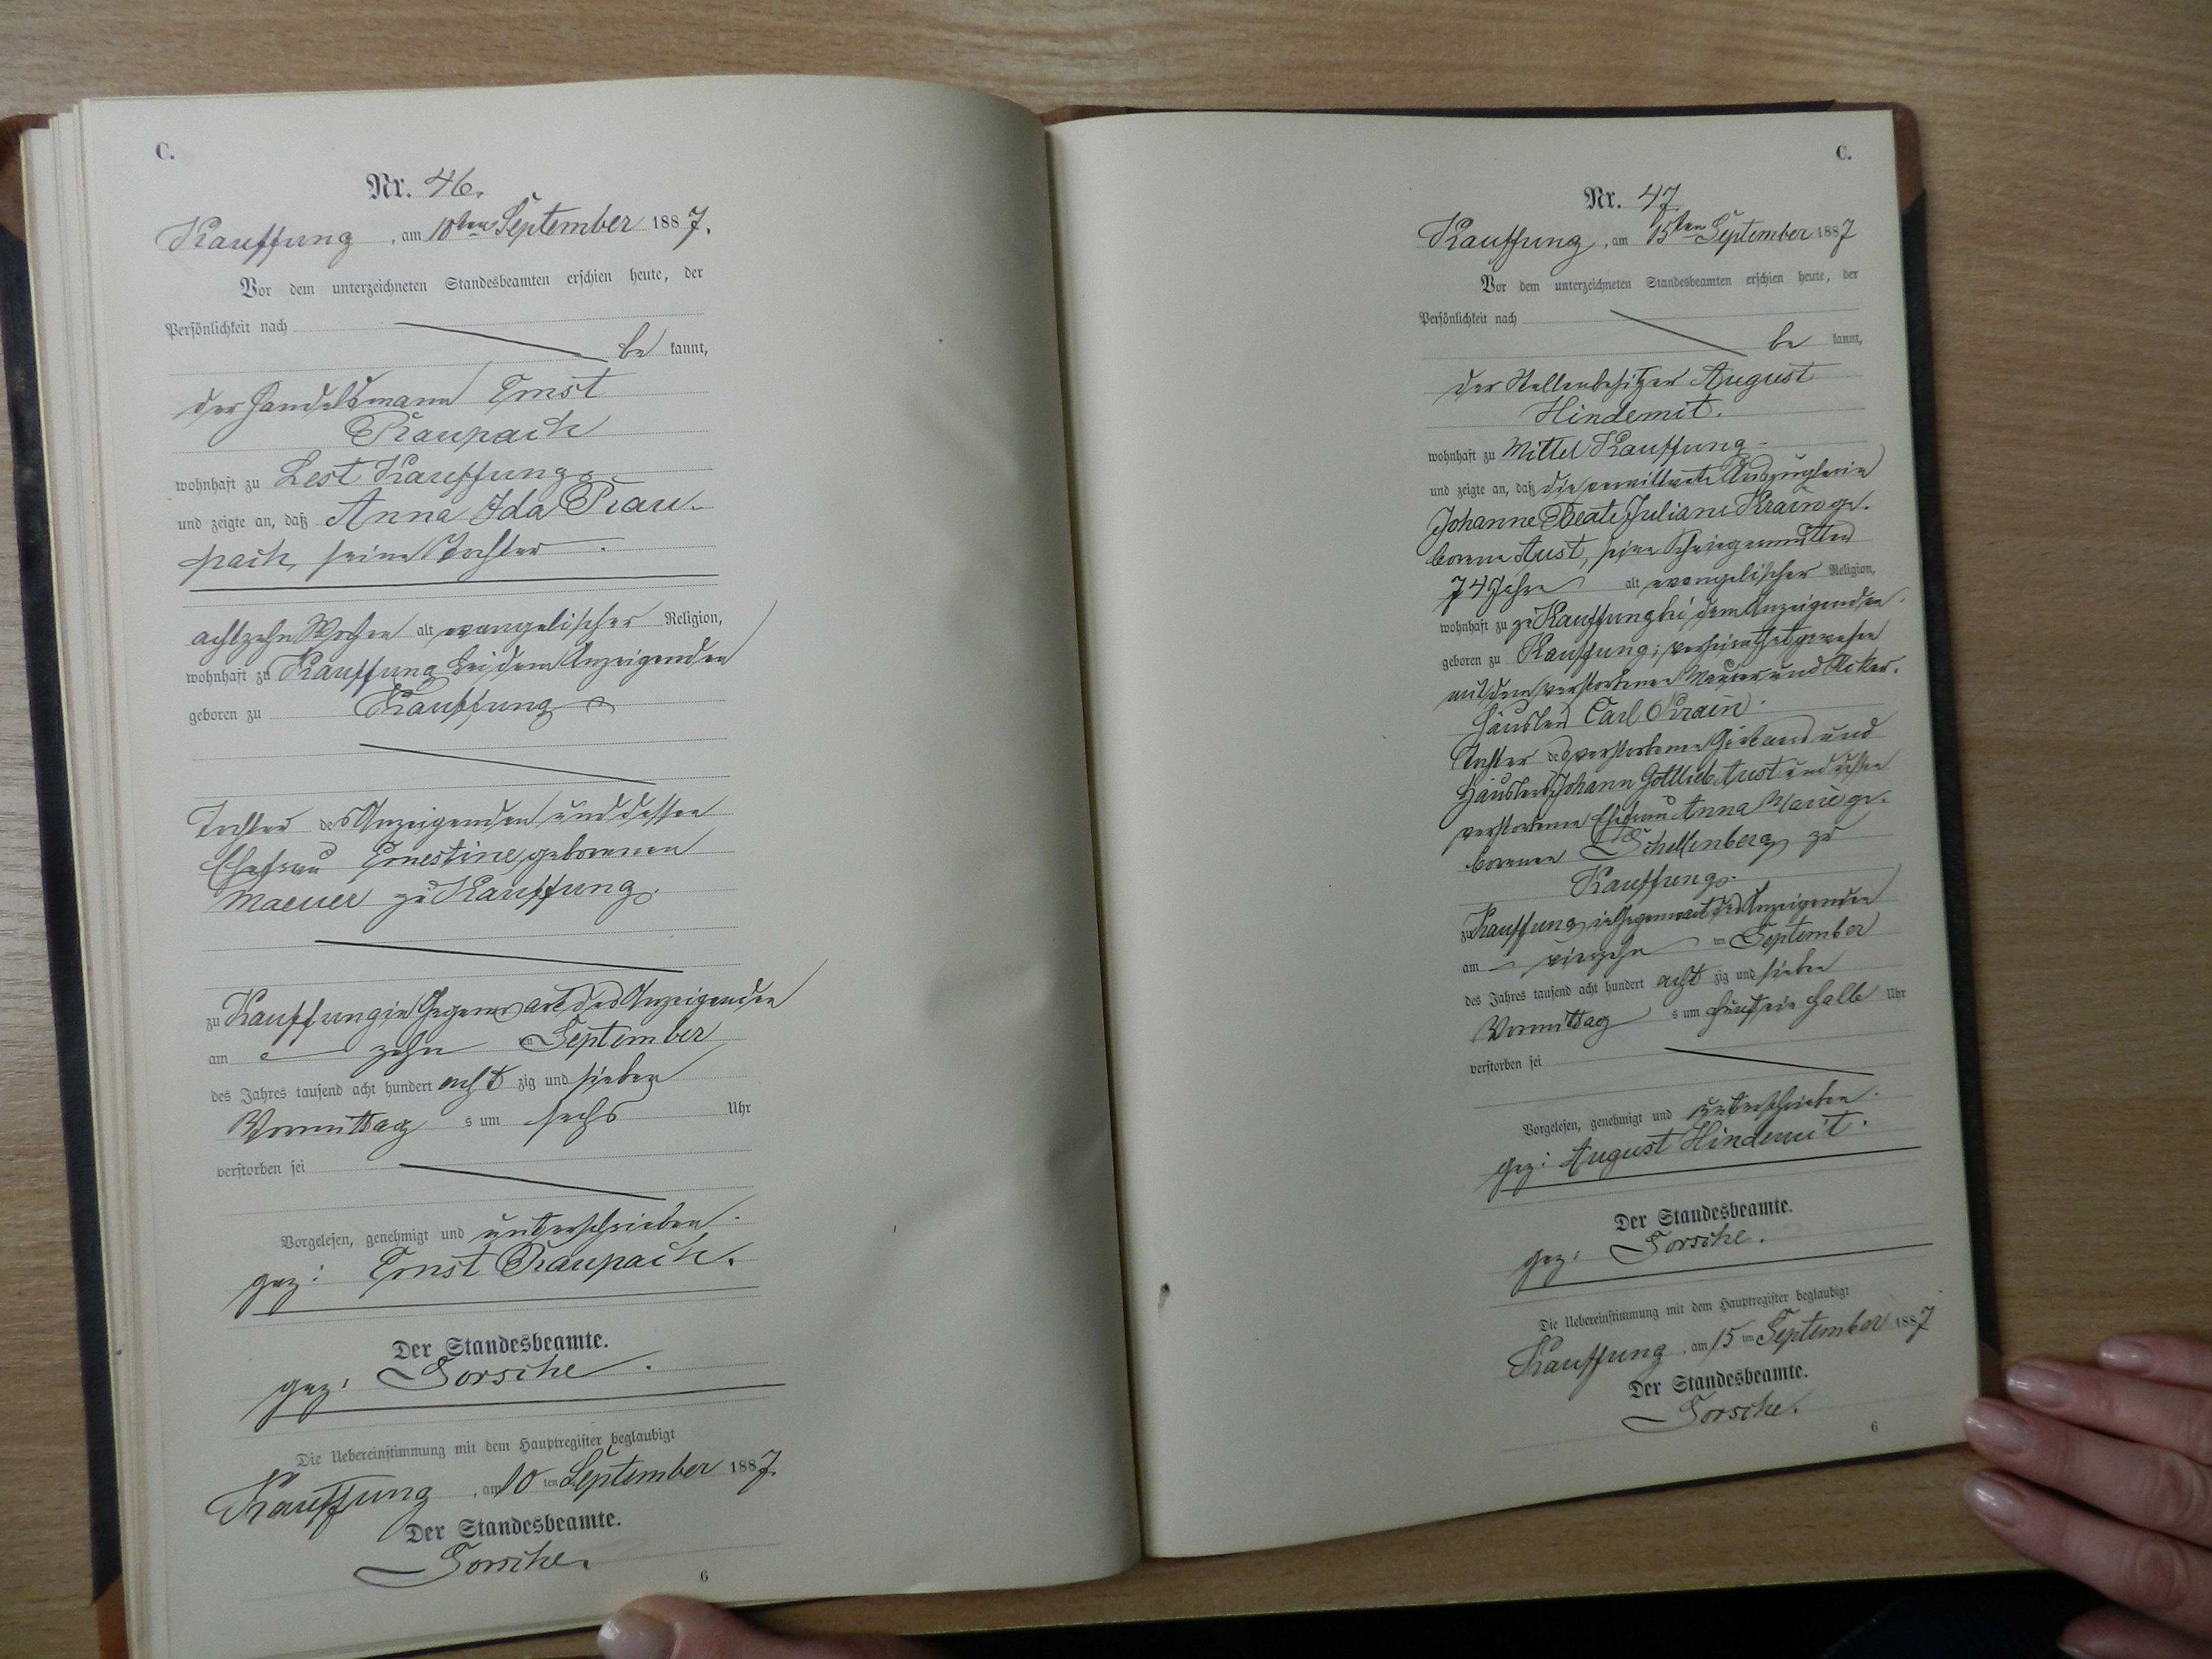 C.
Nr. 46.
Kauffung, am 10ten September 1887.
Vor dem unterzeichneten Standesbeamten erschien heute, der
Persönlichkeit nach
be kannt,
der Handelsmann Ernst
Raupach
wohnhaft zu Lest Kauffung
und zeigte an, daß Anna Ida Rau-
pach, seine Tochter
achtzehn Wochen alt evangelischer Religion,
wohnhaft zu Kauffung bei dem Anzeigenden
geboren zu Kauffung
Tochter des Anzeigenden und dessen
Ehefrau Ernestine, geborenen
zu Kauffung.
zu Kauffung in Gegenwart des Anzeigenden
am zehn ten September
des Jahres tausend acht hundert acht zig und sieben
Vormittag s um sechs Uhr
verstorben sei
Vorgelesen, genehmigt und unterschrieben.
gez: Ernst Raupach.
Der Standesbeamte.
gez: Sorsche.
Die Uebereinstimmung mit dem Hauptregister beglaubigt
Kauffung, am 10 ten September 1887.
Der Standesbeamte.
Sorsche.
6
C.
Nr. 47.
Kauffung, am 15ten September 1887
Vor dem unterzeichneten Standesbeamten erschien heute, der
Persönlichkeit nach
be kannt,
der Stellenbesitzer August
Hindemit.
wohnhaft zu Mittel Kauffung
und zeigte an, daß die verwittwete Auszüglerin
Johanne Beate Juliane Krain ge-
borene Aust, seine Schwiegermutter
74 Jahre alt evangelischer Religion,
wohnhaft zu zu Kauffung bei dem Anzeigenden
geboren zu Kauffung; verheirathet gewesen
mit dem verstorbenen Maurer und Acker-
häusler Carl Krain.
Tochter des verstorbenen und
Häuslers Johann Gottlieb Aust und dessen
verstorbenen Ehefrau Anna Marie ge-
borenen Schellenberg zu
Kauffung.
zu Kauffung in Gegenwart des Anzeigenden
am vierzehn ten September
des Jahres tausend acht hundert acht zig und sieben
Vormittag s um fünf ein halb Uhr
verstorben sei
Vorgelesen, genehmigt und unterschrieben.
gez: August Hindemit.
Der Standesbeamte.
gez: Sorsche.
Die Uebereinstimmung mit dem Hauptregister beglaubigt
Kauffung, am 15 ten September 1887
Der Standesbeamte.
Sorsche.
6